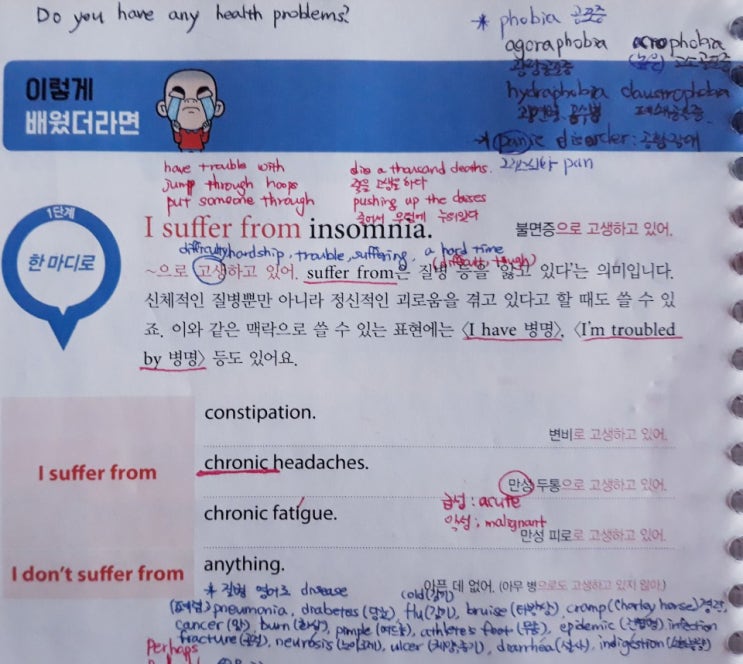 Do you have any health problems?
* phobia 공포증
agoraphobia acrophobia
광장공포증 (높은) 고소공포증
hydraphobia claustrophobia
공수병 폐쇄공포증
* panic disorder : 공황장애
pan
이렇게
배웠더라면
have trouble with
jump through hoops
put someone through
die a thousand deaths.
죽을 고생을 하다
pushing up the daises
죽어서 무덤에 누워있다
1단계
한 마디로
I suffer from insomnia.
불면증으로 고생하고 있어.
difficulty hardship, trouble, suffering, a hard time
(difficult, tough)
~으로 고생하고 있어. suffer from은 질병 등을 '앓고 있다'는 의미입니다.
신체적인 질병뿐만 아니라 정신적인 괴로움을 겪고 있다고 할 때도 쓸 수 있
죠. 이와 같은 맥락으로 쓸 수 있는 표현에는 〈I have 병명〉, 〈I'm troubled
by 병명〉 등도 있어요.
I suffer from
constipation.
변비로 고생하고 있어.
chronic headaches.
만성 두통으로 고생하고 있어.
급성 : acute
악성 : malignant
chronic fatigue.
만성 피로로 고생하고 있어.
I don't suffer from
anything.
아픈 데 없어. (아무 병으로도 고생하고 있지 않아.)
* 질병 영어로 disease
cold(감기)
(폐렴) pneumonia, diabetes (당뇨) flu(감기), bruise (타박상), cramp (Charley horse)
cancer (암), burn (화상), pimple (여드름), athlete's foot (무좀), epidemic (전염병) infection
fracture (골절), neurosis (노이로제), ulcer (궤양), diarrhea (설사), indigestion (소화불량)
Perhaps